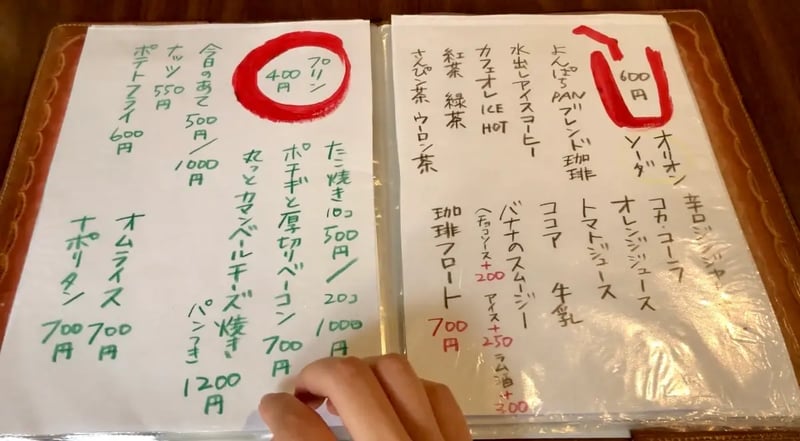 600円
よんぱちPANブレンド珈琲
水出しアイスコーヒー
カフェオレ ICE HOT
紅茶 緑茶
さんぴん茶 ウーロン茶
辛口ジンジャー
オリオンソーダ
コカ・コーラ
オレンジジュース
トマトジュース
ココア 牛乳
バナナのスムージー
〈チョコソース+200 アイス+250 ラム酒+300
珈琲フロート 700円
プリン 400円
今日のあて 500円/1000円
ナッツ 550円
ポテトフライ 600円
たこ焼き 10コ 500円/20コ 1000円
ポテギと厚切りベーコン 700円
丸っとカマンベールチーズ焼き パンつき 1200円
オムライス 700円
ナポリタン 700円